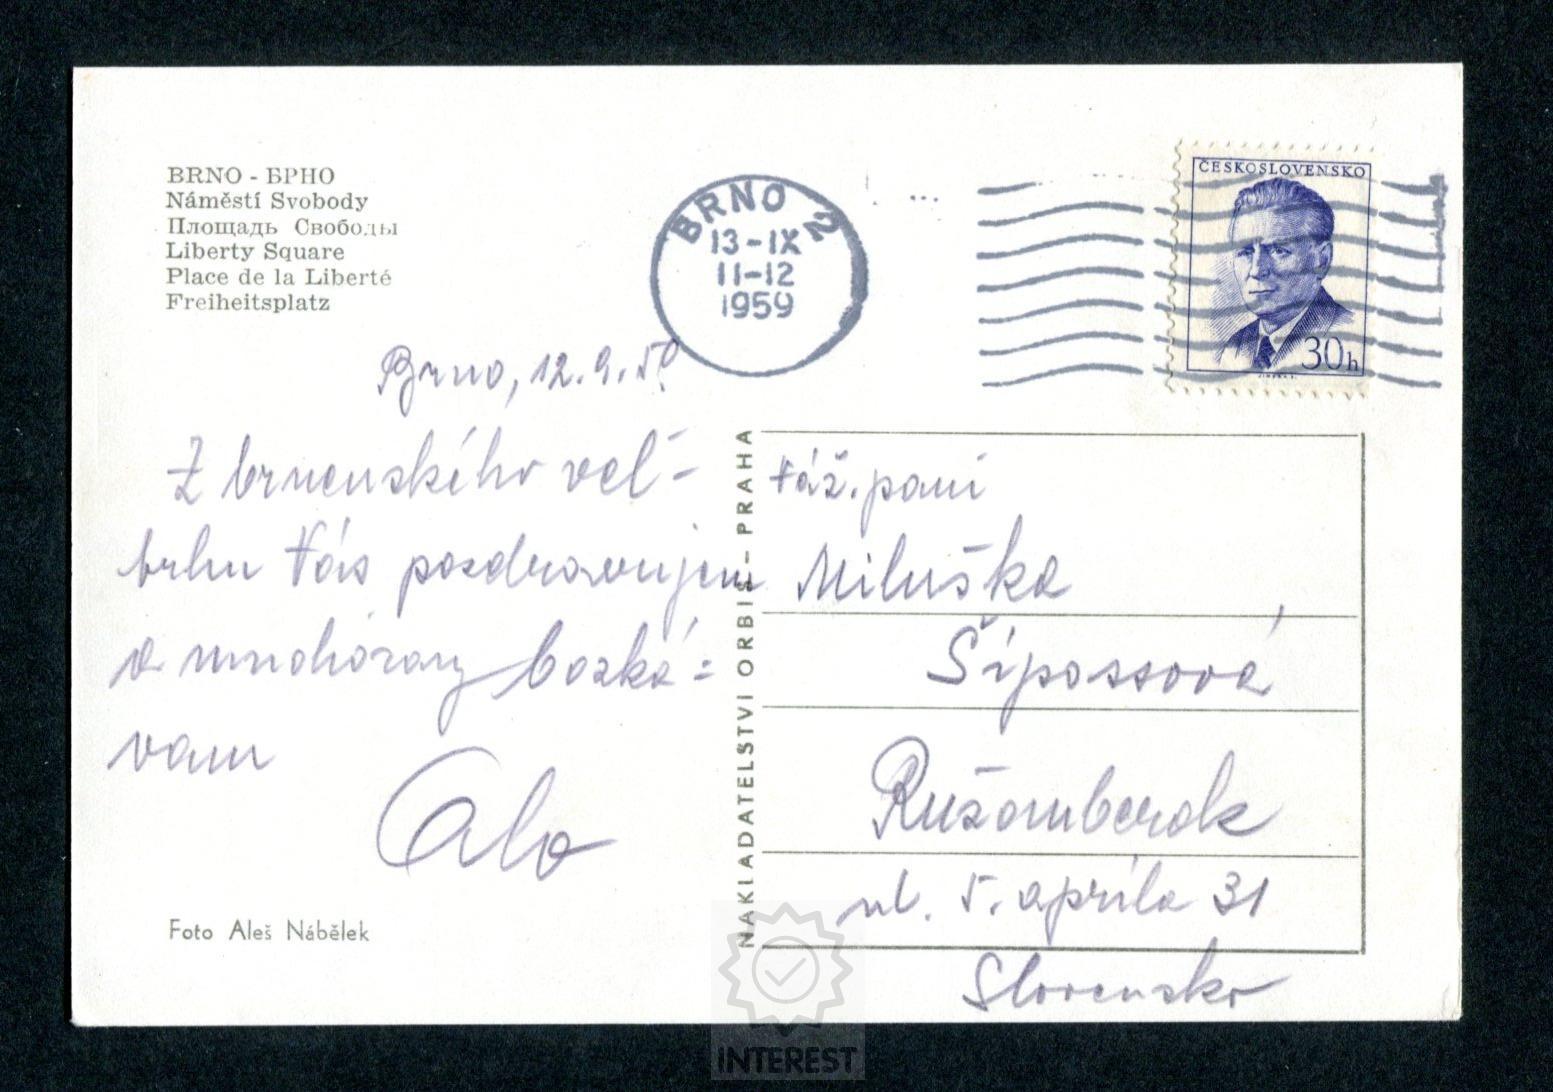 BRNO - БРНО
Náměstí Svobody
Площадь Свободы
Liberty Square
Place de la Liberté
Freiheitsplatz
BRNO 2
13-IX
11-12
1959
ČESKOSLOVENSKO
30h
Brno, 12.9.59
Z brnenského veľ-
trhu Vás pozdravujem
a mnohorazy bozká-
vam
Alo
Foto Aleš Nábělek
NAKLADATELSTVÍ ORBIS - PRAHA
Váž. pani
Miluška
Šípossová
Ružomberok
ul. 5. apríla 31
Slovensko
INTEREST